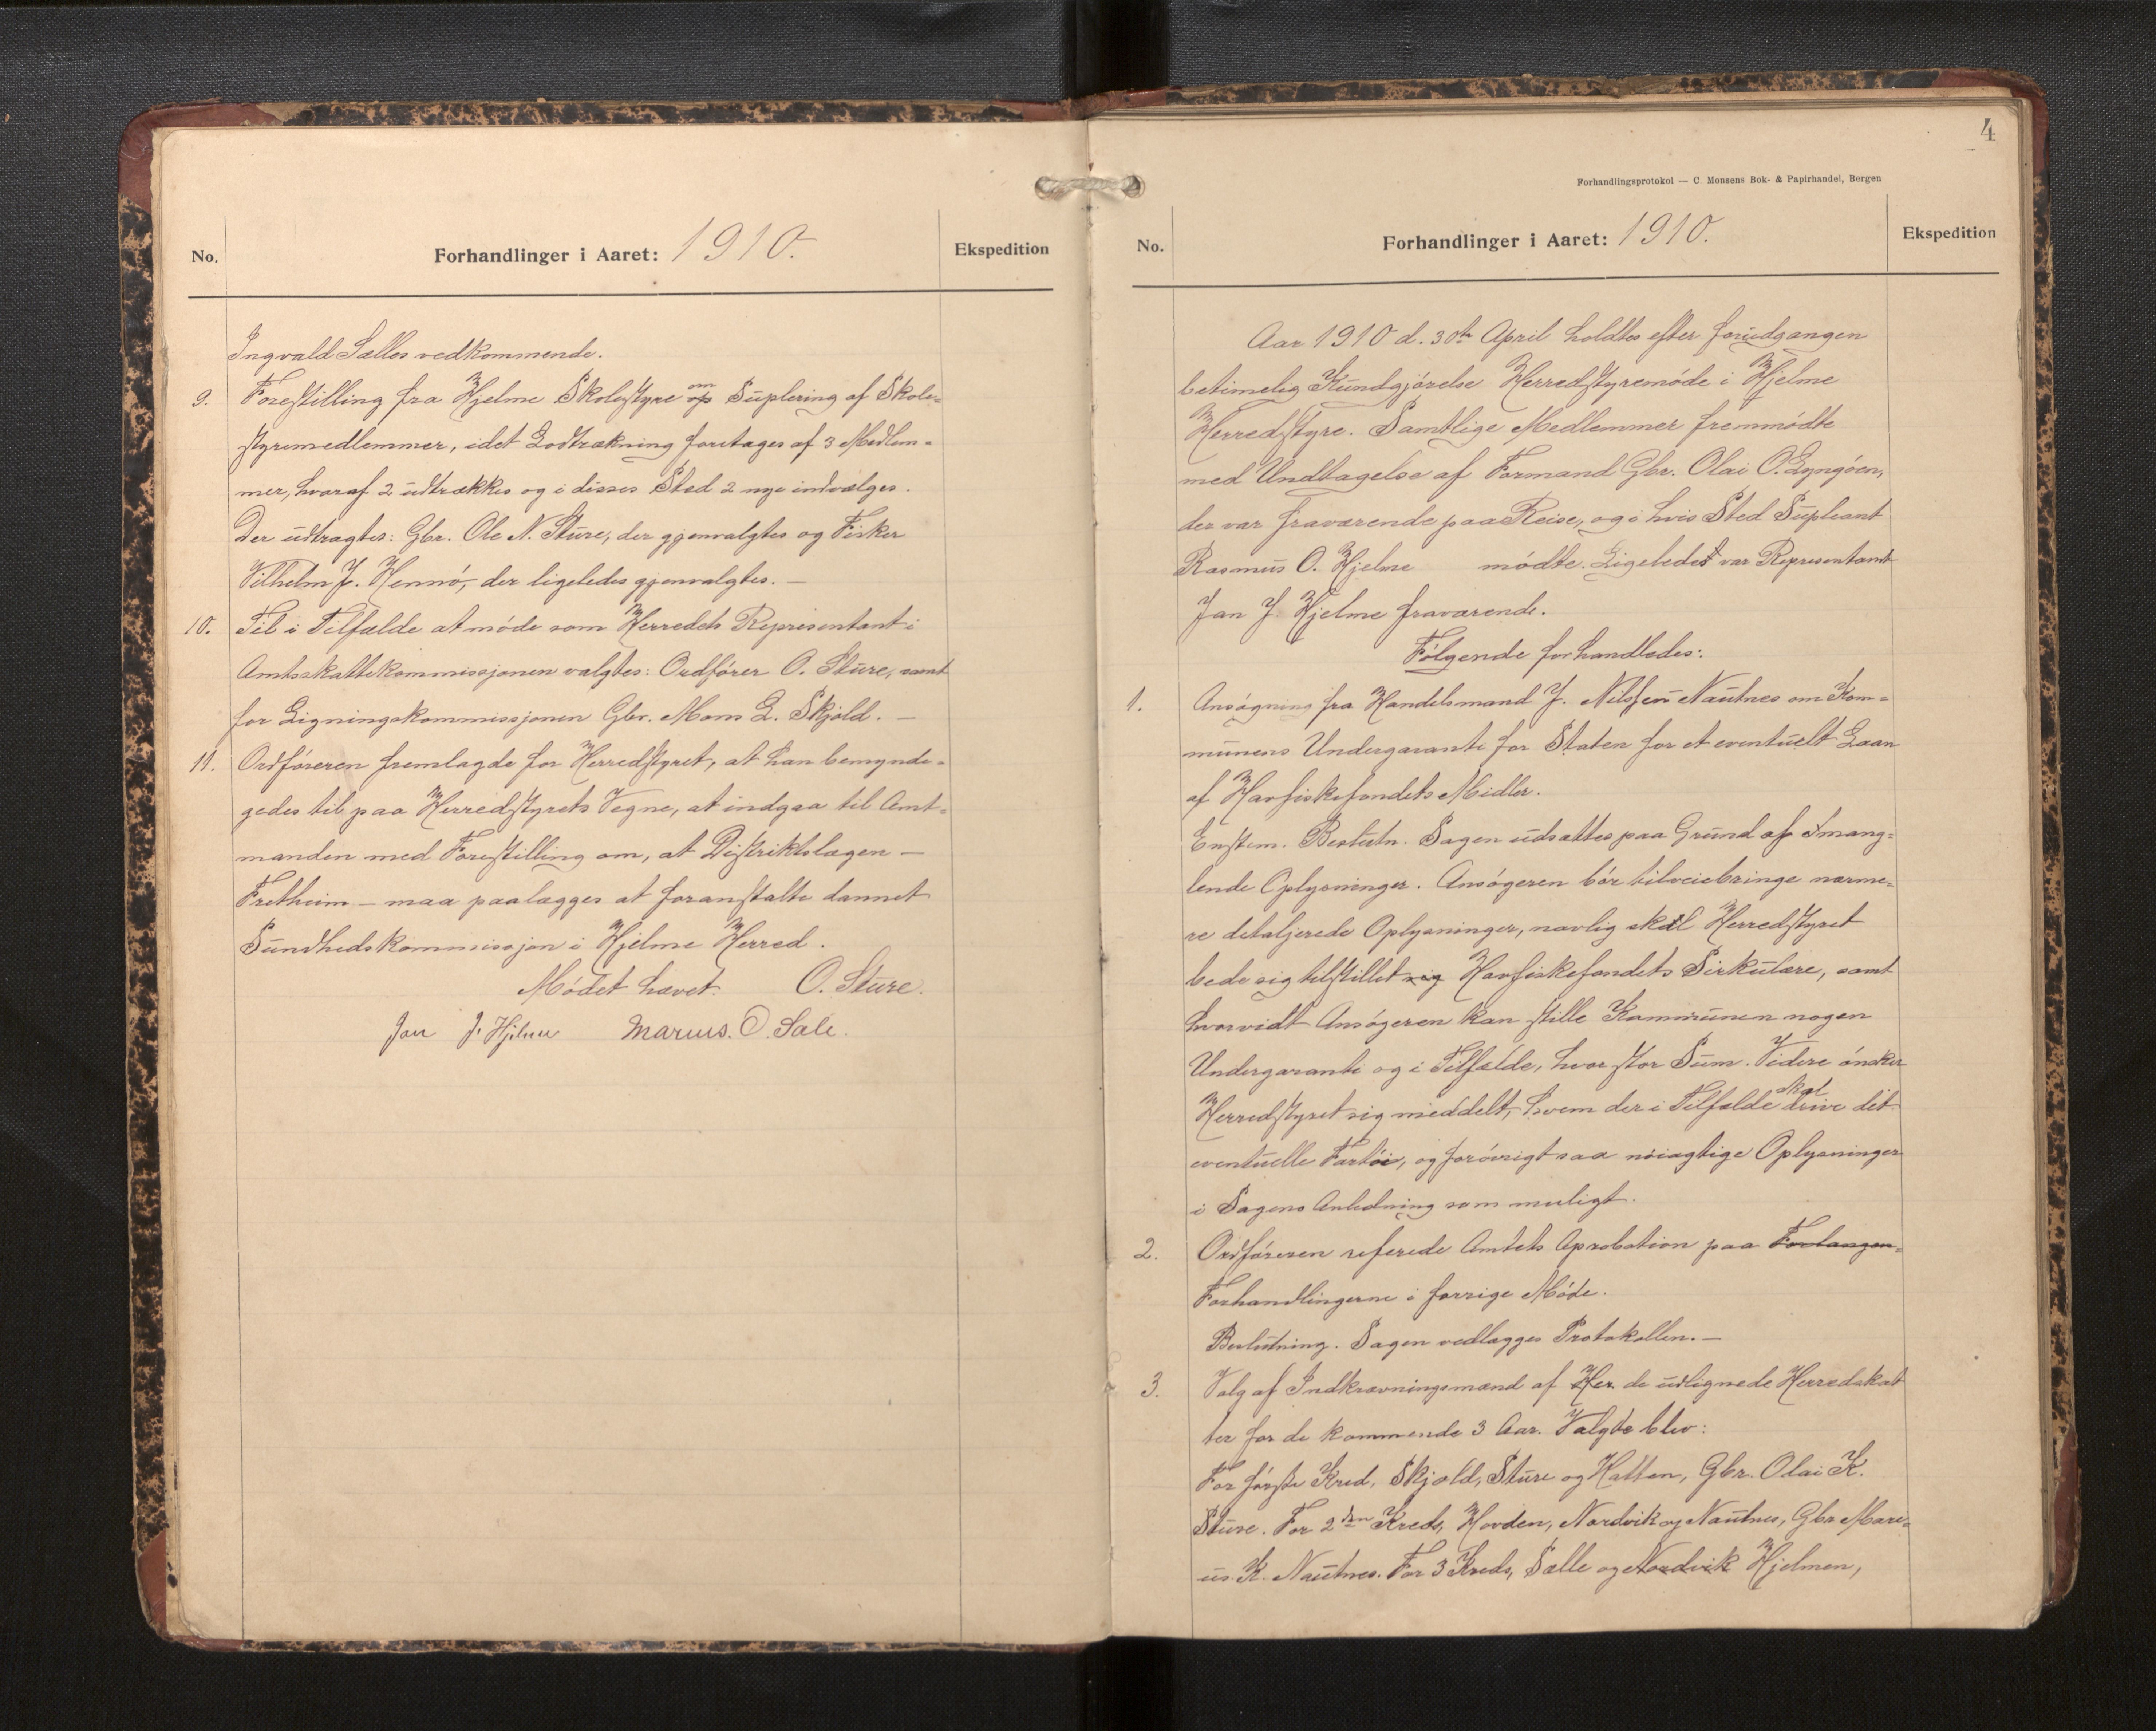 No.
Forhandlinger i Aaret: 1910.
Ekspedition
Ingvald Sælles vedkommende.
9. Forestilling fra Hjelme Skolestyre om Suplering af Skole=
styremedlemmer, idet Lodtrækning foretages af 3 Medlem=
mer, hvoraf 2 udtrækkes og i disses Sted 2 nye indvælges.
Der udtragtes: Gbr. Ole N. Sture, der gjenvalgtes og Fisker
Vilhelm J. Hennø, der ligeledes gjenvalgtes. —
10. Til i Tilfælde at møde som Herredets Representant i
Amtsskattekommissjonen valgtes: Ordfører O. Sture, samt
for Ligningskommissjonen Gbr. Mons L. Skjold. —
11. Ordføreren fremlagde for Herredstyret, at han bemynde=
gedes til paa Herredstyrets Vegne, at indgaa til Amt=
manden med Forestilling om, at Distriktslægen —
Fretheim — maa paalægges at foranstalte dannet
Sundhedskommissjon i Hjelme Herred.
Mødet hævet. O. Sture.
Jan J. Hjelme Marius. O. Sæle.
4
Forhandlingsprotokol — C. Monsens Bok- & Papirhandel, Bergen
No.
Forhandlinger i Aaret: 1910.
Ekspedition
Aar 1910 d. 30te April holdtes efter forudgangen
betimelig Kundgjørelse Herredstyremøde i Hjelme
Herredstyre. Samtlige Medlemmer fremmødte
med Undtagelse af Formand Gbr. Olai O. Lyngøen,
der var fraværende paa Reise, og i hvis Sted Supleant
Rasmus O. Hjelme mødte. Ligeledes var Representant
Jan J. Hjelme fraværende.
Følgende forhandledes:
1. Ansøgning fra Handelsmand J. Nilssen Nautnes om Kom=
munens Undergaranti for Staten for et eventuelt Laan
af Havfiskefondets Midler.
Enstem. Beslutn. Sagen udsattes paa Grund af mang=
lende Oplysninger. Ansøgeren bør tilveiebringe nærme=
re detaljerede Oplysninger, navlig skal Herredstyret
bede sig tilstillet sig Havfiskefondets Sirkulære, samt
hvorvidt Ansøgeren kan stille Kommunen nogen
Undergaranti og i Tilfælde, hvor stor Sum. Videre ønsker
Herredstyret sig meddelt, hvem der i Tilfælde skal drive det
eventuelle Fartøi, og forøvrigt saa nøiagtige Oplysninger
i Sagens Anledning som muligt.
2. Ordføreren referede Amtets Aprobation paa Forlangen=
Forhandlingerne i forrige Møde.
Beslutning. Sagen vedlægges Protokollen. —
3. Valg af Indkrævningsmænd af Her. de udlignede Herredskat
ter for de kommende 3 Aar. Valgte blev:
For første Kred, Skjold, Sture og Halten, Gbr. Olai K.
Sture. For 2den Kreds, Hovden, Nordvik og Nautnes, Gbr Mari=
us. K. Nautnes. For 3 Kreds, Sælle og Nordvik Hjelmen,